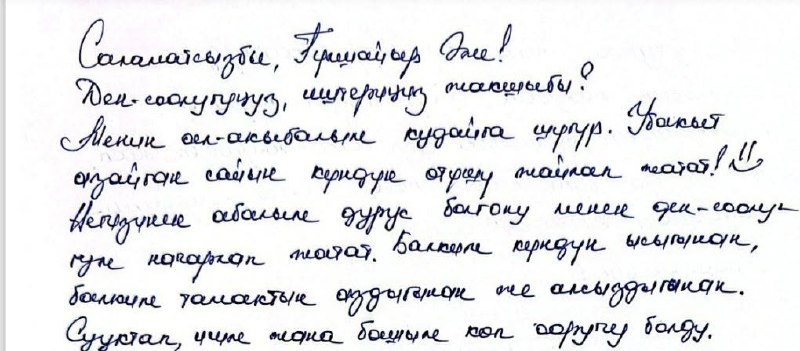 Саламатсызбы, Гүлшайыр Эже!
Ден-соолугуңуз, иштериңиз жакшыбы?
Менин ал-акыбалым кудайга шүгүр. Убакыт
азайган сайын күндүн өтүшү жайлап жатат!
Негизинен абалым дурус болгону менен ден-соолу-
гум начарлап жатат. Балким күндүн ысыгынан,
балким тамактын аздыгынан же алсыздыгынан.
Сууктап, ичим жана башым көп ооручу болду.